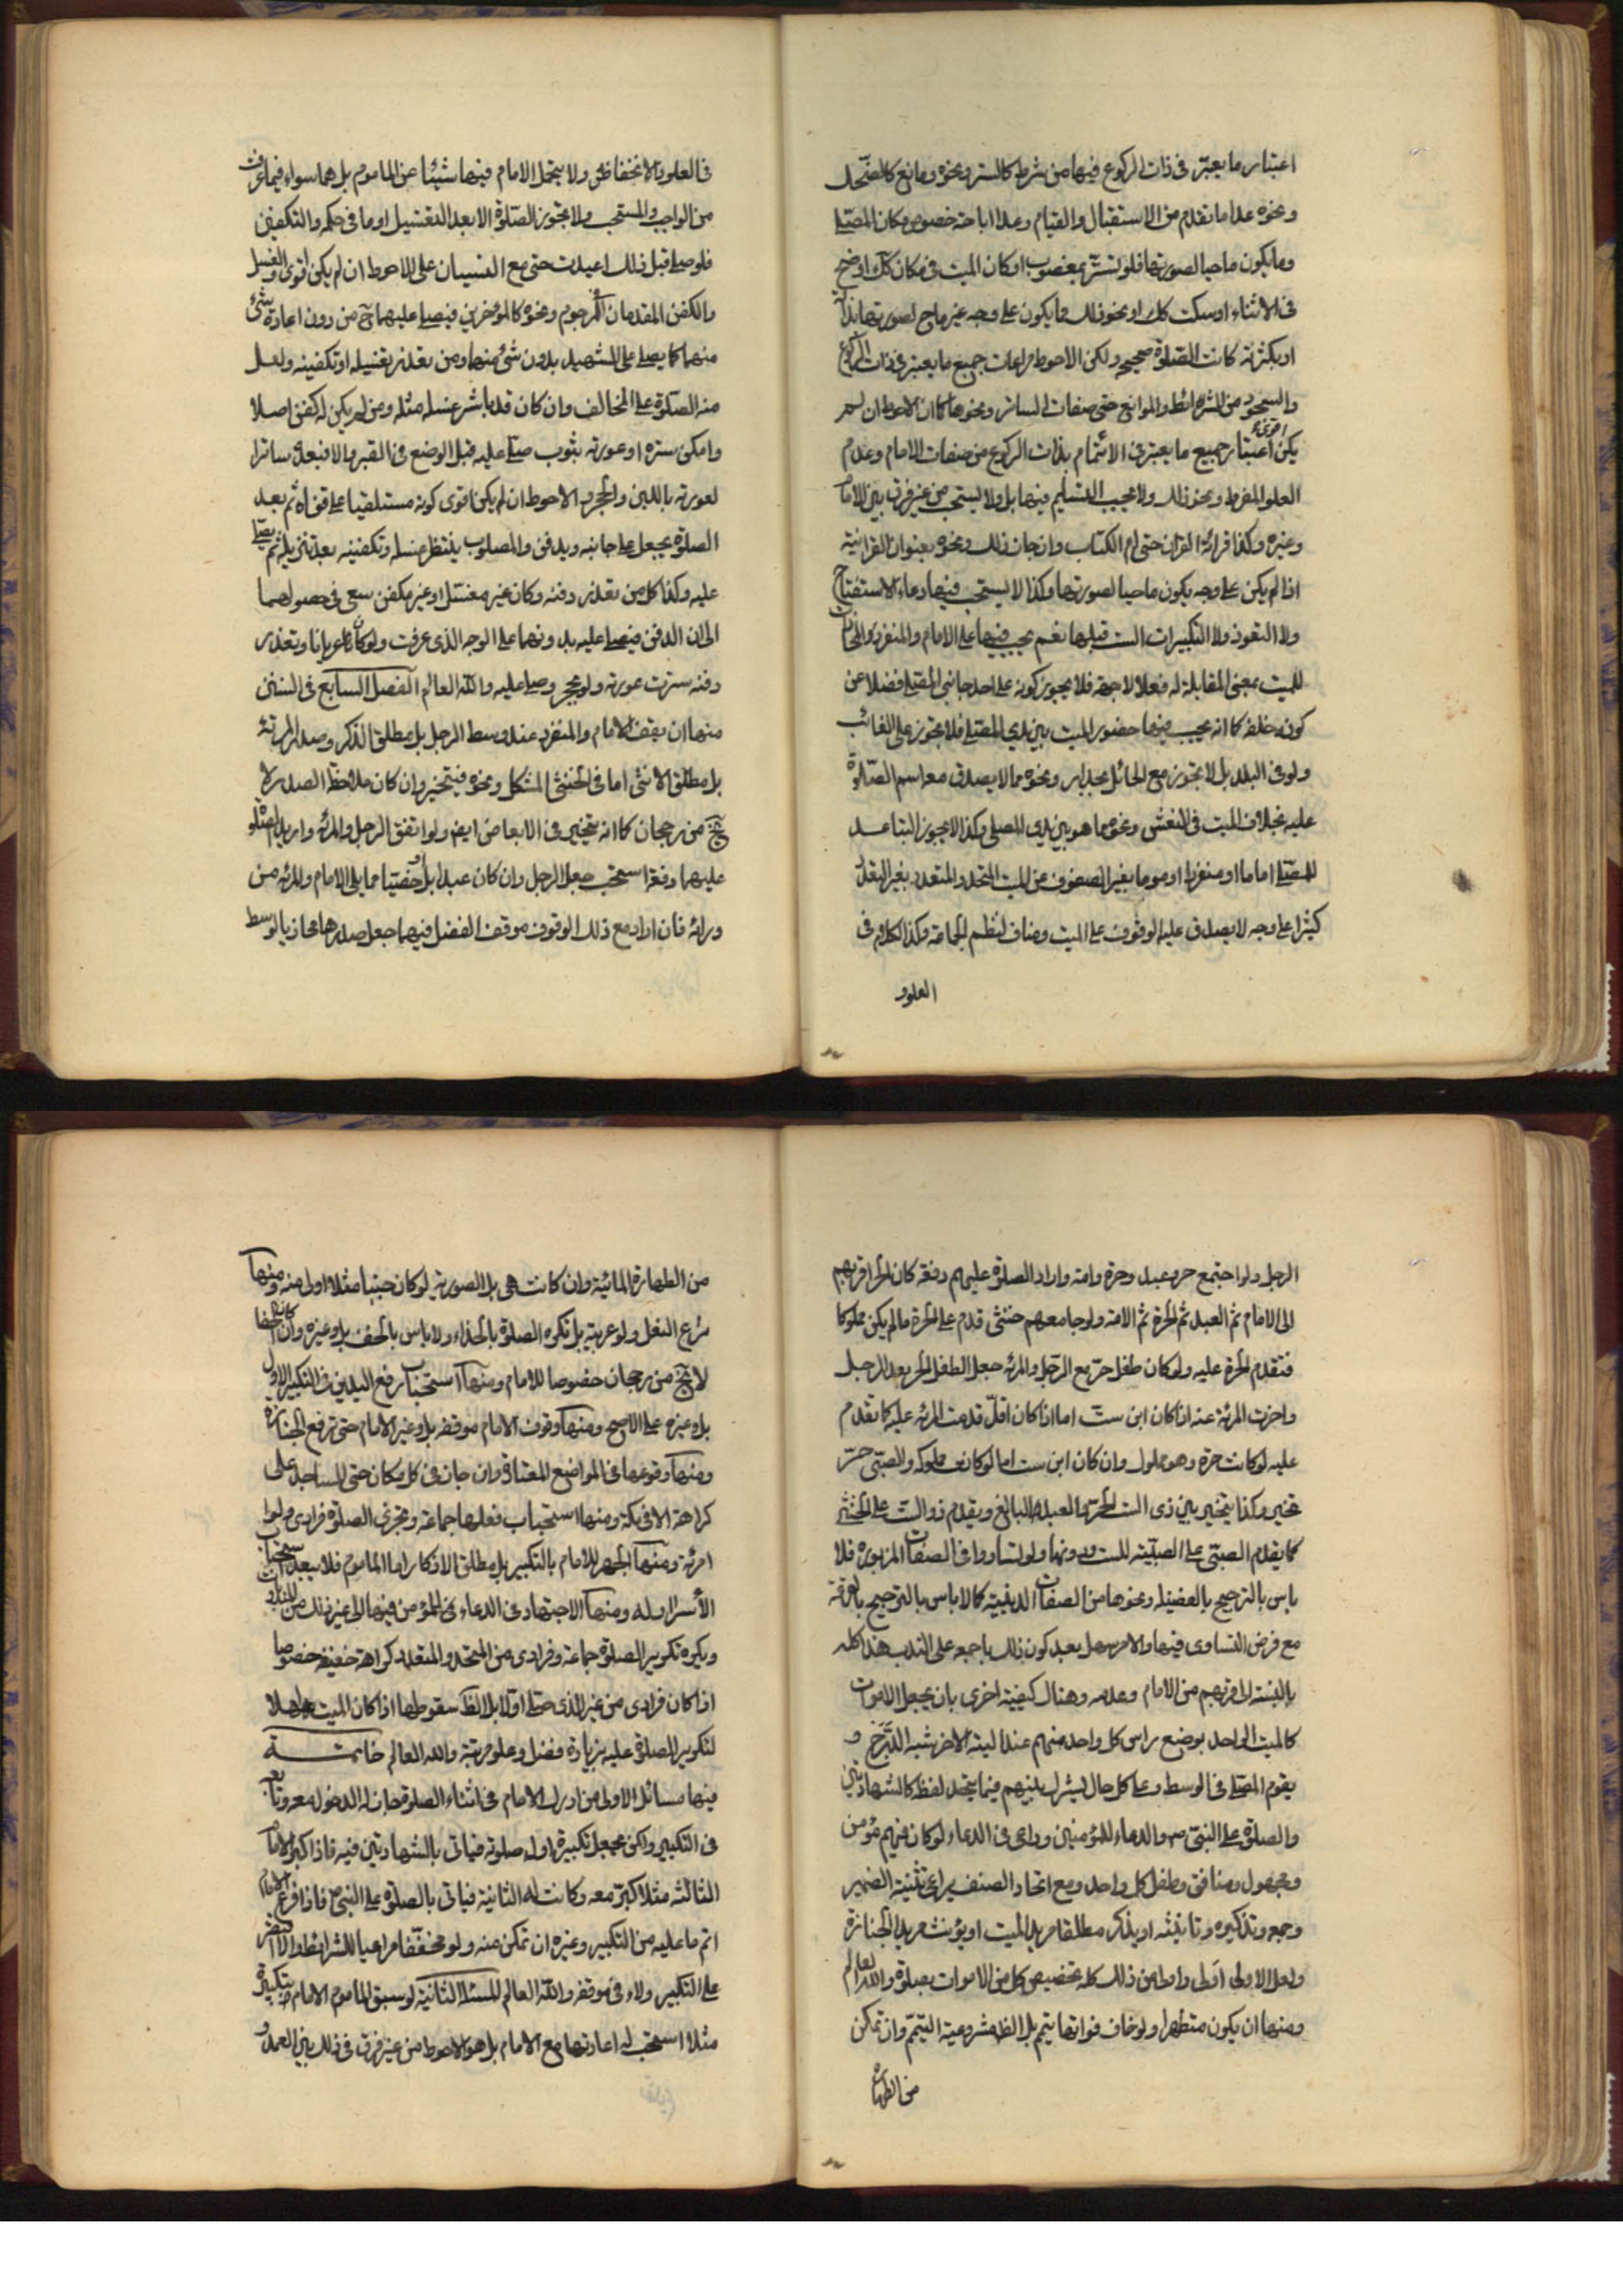 اعتبار ما يعتبر فى ذات الركوع فيها من شرط كالستر ونحوه ومانع كالضحك
ونحوه عدا ما تقدم من الاستقبال والقيام وعدا اباحة خصوص مكان المصلى
وما يكون ماحيا لصورتها فلو تستر بمغصوب او كان الميت فى مكان كك او ضحك
فى الاثناء او سكت كك او نحو ذلك مما يكون على وجه غير ماح لصورتها بذاته
او بكثرته كانت الصلوة صحيحه ولكن الاحوط مراعات جميع ما يعتبر فى ذات الركوع
والسجود من الشرائط والموانع حتى صفات الساتر ونحوها كما ان الاحوط ان لم
يكن اقوى اعتبار جميع ما يعتبر فى الائتمام بذات الركوع من صفات الامام وعدم
العلو المفرط ونحو ذلك ولا يجب التسليم فيها بل ولا يستحب من غير فرق بين الامام
وغيره وكذا قرائة القران حتى ام الكتاب وان جاز ذلك ونحوه بعنوان القرانية
اذا لم يكن على وجه يكون ماحيا لصورتها وكذا لا يستحب فيها دعاء الاستفتاح
ولا التعوذ ولا التكبيرات الست قبلها نعم يجب فيها على الامام والمنفرد المحاذات
للميت بمعنى المقابلة له فعلا لا جهة فلا يجوز كونه على احد جانبى المصلى فضلا عن
كونه خلفه كما انه يجب فيها حضور الميت بين يدى المصلى فلا تجوز على الغائب
ولو فى البلد بل لا تجوز مع الحائل بجدار ونحوه مما لا يصدق معه اسم الصلوة
عليه بخلاف الميت فى النعش ونحوه مما هو بين يدى المصلى وكذا لا يجوز التباعد
للمصلى اماما او منفردا او موما بغير الصفوف عن الميت المتحد والمتعدد بغير المتعدد
كثيرا على وجه لا يصدق عليه الوقوف على الميت ومناف لنظم الجماعة وكذا الكلام فى
العلو و
فى العلو والانخفاظ ولا يتحمل الامام فيها شيئا عن الماموم بل هما سواء فيما عرفت
من الواجب والمستحب ولا تجوز الصلوة الا بعد التغسيل او ما فى حكمه والتكفين
فلو صلى قبل ذلك اعيدت حتى مع النسيان على الاحوط ان لم يكن اقوى والغسل
والكفن المقدمان للمرجوم ونحوه كالمؤخرين فيصلى عليهما ح من دون اعادة شئ
منهما كما يصلى على الشهيد بدون شئ منهما ومن تعذر تغسيله او تكفينه ولعل
منه الصلوة على المخالف وان كان قد باشر غسله مثله ومن لم يكن له كفن اصلا
وامكن ستره او عورته بثوب صلى عليه قبل الوضع فى القبر والا فبعده ساترا
لعورته باللبن والحجر والاحوط ان لم يكن اقوى كونه مستلقيا على قفاه ثم بعد
الصلوة يجعل على جانبه ويدفن والمصلوب ينتظر غسله وتكفينه بعد تنزيله ثم يصلى
عليه وكذا كل من تعذر دفنه وكان غير مغتسل او غير مكفن سعى فى حصولهما
الى ان الدفن فيصلى عليه بدونهما على الوجه الذى عرفت ولو كان عريانا وتعذر
دفنه سترت عورته ولو بحجر وصلى عليه والله العالم الفصل السابع فى السنن
منها ان يقف الامام والمنفرد عند وسط الرجل بل مطلق الذكر وصدر المرئة
بل مطلق الانثى اما فى الخنثى المشكل ونحوه فيتخير وان كان ملاحظة الصدر لا
يخ من رجحان كما انه يتخير فى الابعاض ايض ولو اتفق الرجل والمرئة واريد الصلوة
عليهما دفعة استحب جعل الرجل وان كان عبدا بل او خصيا مما يلى الامام والمرئه من
ورائه فان اراد مع ذلك الوقوف موقف الفضل فيهما جعل صدرها محاذيا لوسط
الرجل ولو اجتمع حر وعبد وحرة وامة واراد الصلوة عليهم دفعة كان الحر اقربهم
الى الامام ثم العبد ثم الحرة ثم الامة ولو جامعهم خنثى قدم على الحرة ما لم يكن مملوكا
فتقدم الحرة عليه ولو كان طفل حر مع الرجل والمرئه جعل الطفل الحر بعد الرجل
واخرت المرئة عنه اذا كان ابن ست اما اذا كان اقل قدمت المرئه عليه كما تقدم
عليه لو كانت حرة وهو مملوك وان كان ابن ست اما لو كانت مملوكه والصبى حر
تخير وكذا يتخير بين ذى الست الحر والعبد البالغ ويقدم ذو الست على الخنثى
كما يقدم الصبى على الصبية للست ودونها ولو تساووا فى الصفات المزبوره فلا
باس بالترجيح بالفضيله ونحوها من الصفات الدينية كما لا باس بالترجيح بالقرعة
مع فرض التساوى فيها والامر سهل بعد كون ذلك باجمعه على الندب هذا كله
بالنسبة لاقربهم من الامام وعدمه وهناك كيفية اخرى بان يجعل الاموات
كالميت الواحد بوضع راس كل واحد منهم عند الية الاخر شبه الدرج و
يقوم المصلى فى الوسط وعلى كل حال ليشرك بينهم فيما يتحد لفظه كالشهادتين
والصلوة على النبى ص والدعاء للمؤمنين وراعى فى الدعاء لو كان فيهم مؤمن
ومجهول ومنافق وطفل كل واحد ومع اتحاد الصنف يراعى تثنية الضمير
وجمعه وتذكيره وتانيثه او يذكر مطلقا مريدا الميت او يؤنث مريدا الجنازة
ولعل الاولى اولى واولى من ذلك كله تخصيص كل من الاموات بصلوة والله العالم
ومنها ان يكون متطهرا ولو خاف فواتها تيمم بل الظ مشروعية التيمم وان تمكن
من الطهارة
من الطهارة المائية وان كانت هى بل الصورية لو كان جنبا مثلا اولى منه ومنها
نزع النعل ولو عربية بل تكره الصلوة بالحذاء ولا باس بالخف بل وغيره وان كان الحفا
لا يخ من رجحان خصوصا للامام ومنها استحباب رفع اليدين فى التكبير الاول
بل وغيره على الاصح ومنها وقوف الامام موقفه بل وغير الامام حتى ترفع الجنازة
ومنها وقوعها فى المواضع المعتادة وان جاز فى كل مكان حتى المساجد على
كراهة الا فى مكة ومنها استحباب فعلها جماعة وتجزى الصلوة فرادى ولو
امرئة ومنها الجهر للامام بالتكبير بل مطلق الاذكار اما الماموم فلا يبعد استحباب
الأسرار له ومنها الاجتهاد فى الدعاء للمؤمن فيها الى غير ذلك من المندوبات
ويكره تكرير الصلوة جماعة وفرادى من المتحد والمتعدد كراهة خفيفة خصوصا
اذا كان فرادى من غير الذى صلى اولا بل الظ سقوطها اذا كان الميت اهلا
لتكرير الصلوة عليه بزيادة فضل وعلو مرتبة والله العالم خاتمة
فيها مسائل الاولى من ادرك الامام فى اثناء الصلوة جاز له الدخول معه وتابعه
فى التكبير ولكن يجعل تكبيرة اول صلوته فياتى بالشهادتين فيه فاذا كبر الامام
الثالثه مثلا كبر معه وكانت له الثانية فياتى بالصلوة على النبى ص فاذا فرغ الامام
اتم ما عليه من التكبير وغيره ان تمكن منه ولو مخففا مراعيا للشرائط والا اقتصر
على التكبير ولاء فى موقفه والله العالم المسئلة الثانية لو سبق الماموم الامام بتكبيرة
مثلا استحب له اعادتها مع الامام بل هو الاحوط من غير فرق فى ذلك بين العمد و